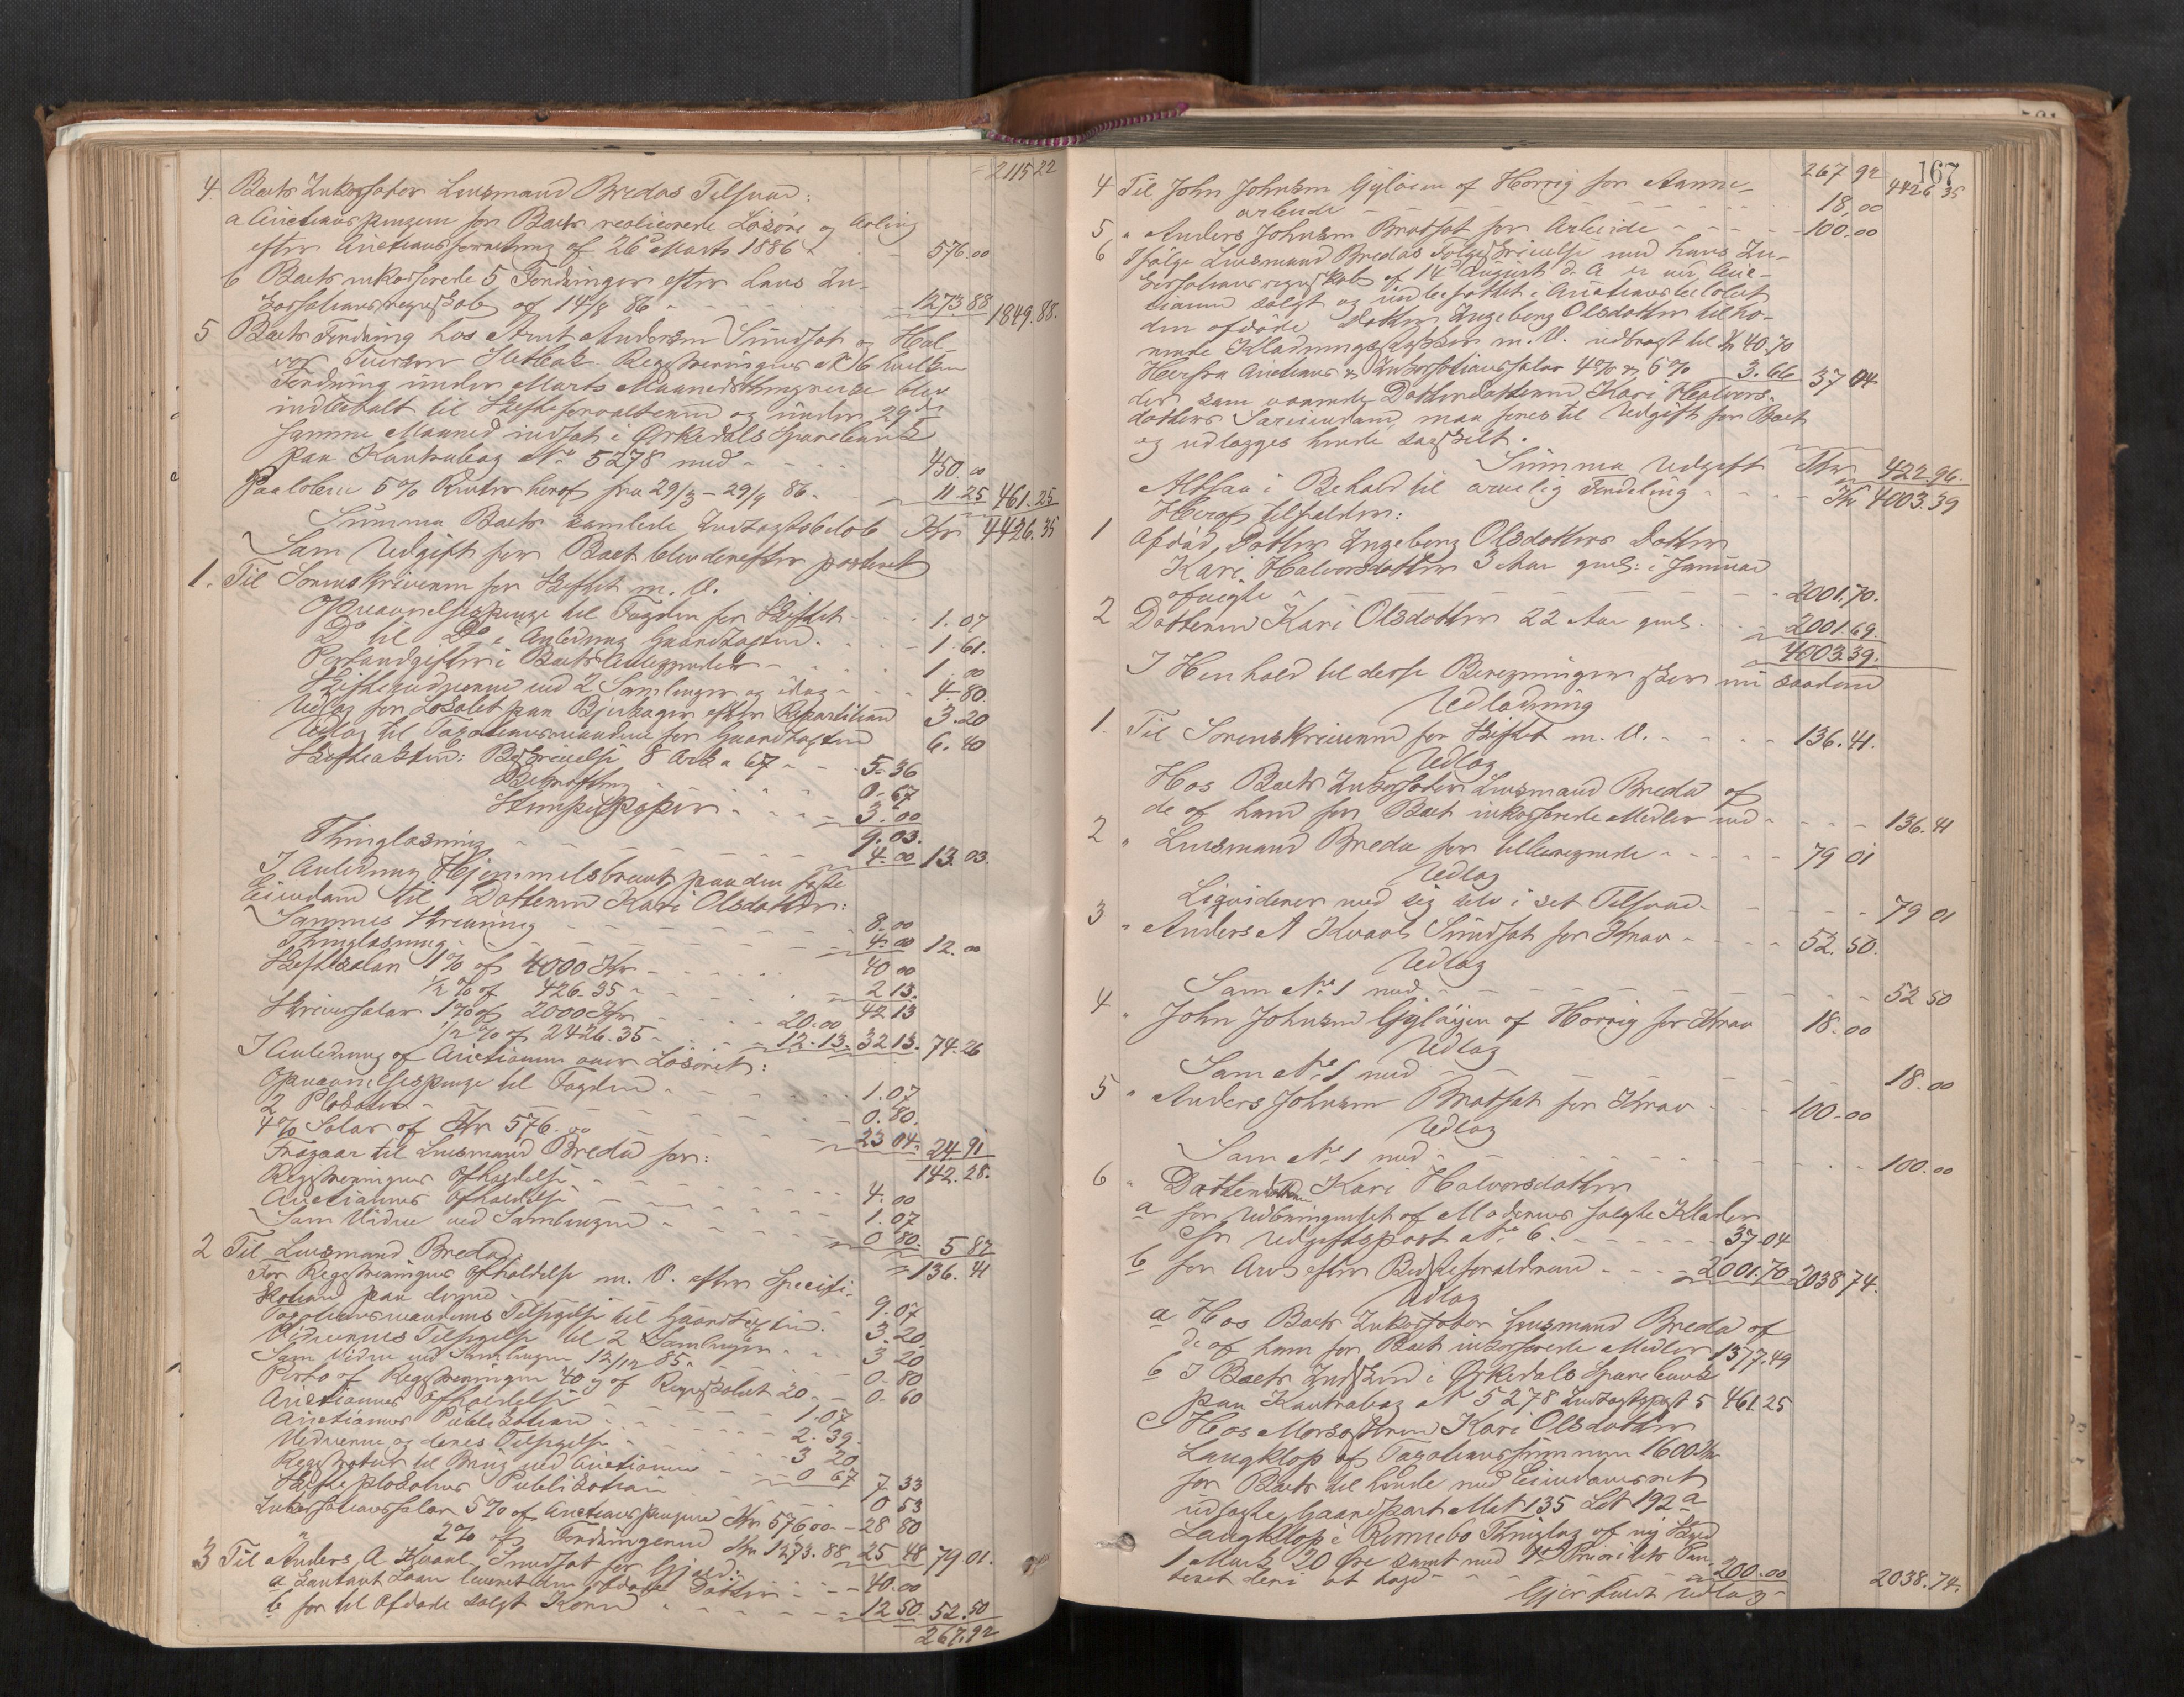 2115 22
4. Boets Inkassator Lensmand Bredes Tilsvar:
a Auctionspengene for Boets realiserede Løsøre og Avling
efter Auctionsforretning af 26de Marts 1886 - 576.00
b Boets inkasserede 5 Fordringer efter hans In-
kassationsregnskab af 14/8 86 - 1273 88 1849.88.
5 Boets Fordring hos Arnt Andersen Sundset og Hal-
vor Iversen Registreringens No 6 hvilken
Fordring under Marts Maanedsthingreise blev
indbetalt til Skifteforvalteren og under 29de
samme Maaned indsat i Ørkedals Sparebank
paa Kontrabog No 5278 med - 450.00
Paaløbne 5 % Renter heraf fra 29/3 - 29/9 86. - 11.25 461.25
Summa Boets samlede Indtægtsbeløb Kr 4426.35
Som Udgift for Boet blev derefter posteret
1. Til Sorenskriveren for Skiftet m. V.
Opnævnelsespenge til Fogden for Skiftet - 1.07
Do til Do i Anledning Gaardtaxten - 1.61.
Portoudgifter i Boets Anliggender - 1.00
Skiftevidnerne ved 2 Samlinger og idag - 4.80
Udlæg for Lokalet paa Bjerkager efter Repartition 3.20
Udlæg til Taxationsmændene for Gaardtaxten 6.40
Skifteakten: Beskrivelse 8 Ark a 67 - 5.36
Bekræftning 0.67
Stempetpapir - 3.00
9.03.
Thinglæsning - 4.00 13.03.
I Anledning Hjemmelsbrevet paa den faste
Eiendom til Datteren Kari Olsdatter:
Sammes Skrivning - 8.00
Thinglæsning - 4.00 12.00
Skiftesalær 1 % af 4000 Kr - 40 00
1/2 % af 426.35 - 2 13.
42 13
Skriversalær 1 % af 2000 Kr - 20.00
1/2 % af 2426.35 - 12.13. 32 13. 74.26
I Anledning af Auctionen over Løsøret:
Opnævnelsespenge til Fogden - 1.07
2 Plakater - 0.80.
4 % Salær af Kr 576.00 - 23 04. 24 91
142.28.
Fragaar til Lensmand Brede for:
Registreringens Afholdelse - 4.00
Auctionens Afholdelse - 1.07
Som Vidne ved Samlingen - 0 80. 5 87
136.41
2 Til Lensmand Brede
For Registreringens Afholdelse m. V. efter Specifi-
kation paa denne - 9.07
Taxationsmændenes Tilsigelse til Gaardtaxten. 3.20
Vidnernes Tilsigelse til 2 Samlinger - 3 20
Som Vidne ved Samlingen 12/12 85. - 0.80
Porto af Registreringen 40 og af Regnskabet 20 - 0.60
Auctionens Afholdelse - 1.07
Auctionens Publikation - 2.39.
Vidnerne og deres Tilsigelse - 3 20
Registratur til Brug ved Auctionen - 0 67 7 33
Skifteplakatens Publikation - 0 53
Inkassationssalær 5 % af Auctionspengene Kr 576.00 - 28 80
2 % af Fordringerne Kr 1273.88 25 48 79.01.
3 Til Anders A. Kvaal Sundset for Gjæld:
a Kontant Laan leveret den afdøde Datter - 40.00
b for til Afdøde solgt Korn - 12 50. 52.50
267.92
167
267 92 4426 35
4 Til John Johnsen Gyløien af Horrig for Aanne-
arbeide - 18.00
5 " Anders Johnsen Bratset for Arbeide - 100.00
6 Ifølge Lensmand Bredes Følgeskrivelse med hans In-
kassationsregnskab af 14de August d. A. er ved Auc-
tionen solgt og indbefattet i Auctionsbeløbet
den afdøde Datter Ingeborg Olsdatter tilhø-
rende Klædningsstykker m. V. udbragt til Kr 40.70
Herfra Auctions & Inkassationssalær 4 % & 5 % 3.66 37 04
der som værende Datterdatteren Kari Halvors-
datters Særeiendom maa føres til Udgift for Boet
og udlægges hende særskilt.
Summa Udgift Kr 422.96.
Altsaa i Behold til arvelig Fordeling - Kr 4003.39
Heraf tilfalder:
1 Afdød Datter Ingeborg Olsdatters Datter
Kari Halvorsdatter 3 Aar gml: i Januar
afvigte - 2001.70.
2 Datteren Kari Olsdatter 22 Aar gml. - 2001.69.
4003.39.
I Henhold til disse Beregninger sker nu saadan
Udlodning
1. Til Sorenskriveren for Skiftet m. V. - 136.41.
Udlæg
Hos Boets Inkassator Lensmand Brede af
de af ham for Boet inkasserede Midler med - 136.41
2 " Lensmand Brede for tilberegnede - 79 01
Udlæg
Liqviderer med sig selv i sit Tilsvar - 79 01
3 " Anders A Kvaal Sundset for Krav - 52.50.
Udlæg
Som No 1 med - 52 50
4 " John Johnsen Gyløien af Horrig for Krav 18.00
Udlæg
Som No 1 med - 18.00
5 " Anders Johnsen Bratset for Krav - 100.00
Udlæg
Som No 1 med - 100.00
6 " Datterdatteren Kari Halvorsdatter
a for Udbringendet af Moderens solgte Klæder
cfr Udgiftspost No 6. - 37.04
b for Arv efter Bedsteforældrene - 2001.70 2038 74.
Udlæg
a Hos Boets Inkassator Lensmand Brede af
de af ham for Boet inkasserede Midler 1377.49
b I Boets Indskud i Ørkedals Sparebank
paa Kontrabog No 5278 Indtægtspost 5 461.25
c Hos Morsøsteren Kari Olsdatter
Langklop af Taxationssummen 1600 Kr
for Boets til hende med Eiendomsret
udlagte Gaardpart Mat 135 Løb 192 a
Langklop i Rennebo Thinglag af ny Skyld
1 Mark 20 Øre samt med 1ste Prioritets Pan-
teret deri at tage - 200.00 2038.74.
Gjør fuldt Udlæg -